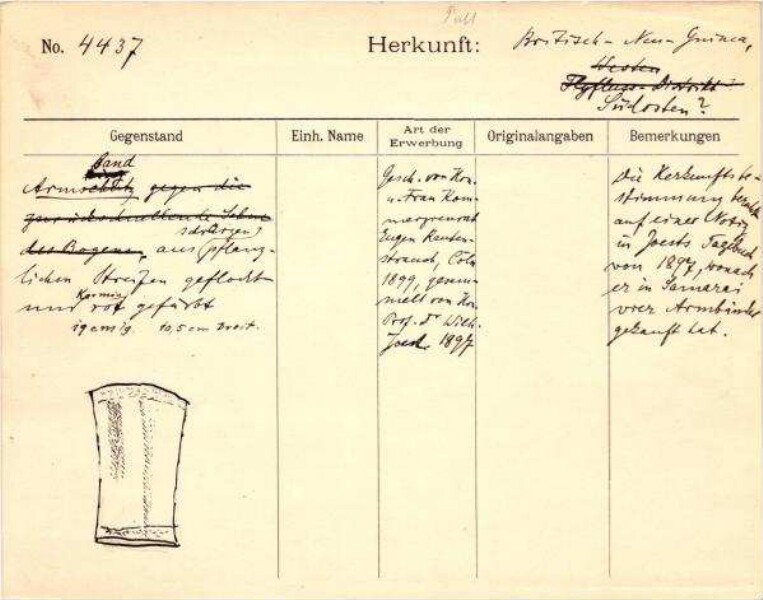 No. 4437
Herkunft: Britisch-Neu-Guinea,
Westen
Flyfluss-Distrikt
Südosten?
Gegenstand
Einh. Name
Art der
Erwerbung
Originalangaben
Bemerkungen
Band
Armschutz gegen die
zurückschnellende Sehne
des Bogens, aus pflanz-
lichen Streifen geflochten
Karmin
und rot gefärbt
19 cm lg. 10,5 cm breit.
Gesch. von Hrn.
u. Frau Kom-
merzienrat
Eugen Rauten-
strauch, Cöln
1899, gesam-
melt von Hrn.
Prof. Dr Wilh.
Joest 1897
Die Herkunftsbe-
stimmung beruht
auf einer Notiz
in Joests Tagebuch
von 1897, wonach
er in Samarai
vier Armbänder
gekauft hat.